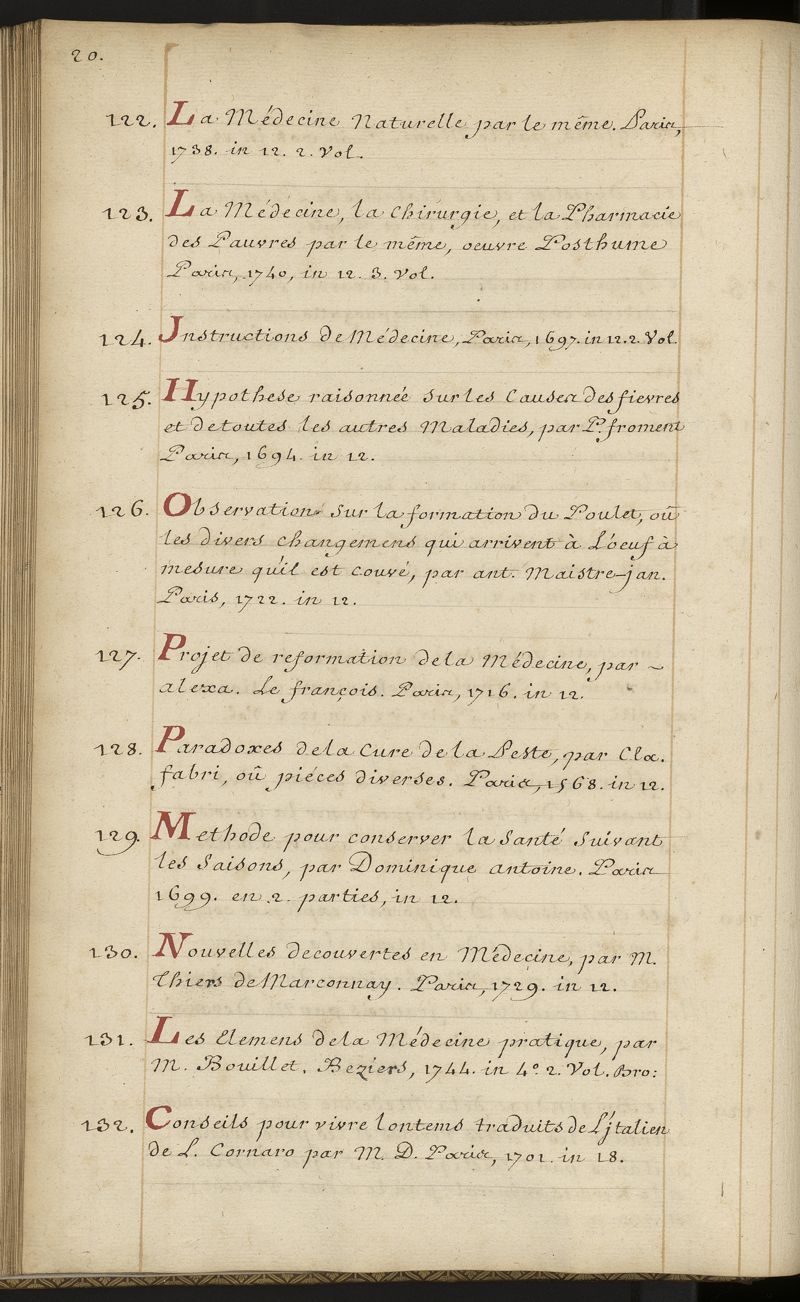 20.
122. La Médecine Naturelle par le même. Paris,
1738. in 12. 2. Vol.
123. La Médecine, la Chirurgie, et la Pharmacie
des Pauvres par le même, oeuvre Posthume
Paris, 1740, in 12. 3. Vol.
124. Instructions de Médecine, Paris, 1697. in 12. 2. Vol.
125. Hypothese raisonnée sur les Causes des fievres
et de toutes les autres Maladies, par P. froment
Paris, 1694. in 12.
126. Observations sur la formation du Poulet, où
les divers changemens qui arrivent à L'oeuf à
mesure qu'il est couvé, par ant. Maistre-jan.
Paris, 1722. in 12.
127. Projet de reformation de la Médecine, par ~
alexa. Le françois. Paris, 1716. in 12.
128. Paradoxes de la Cure de la Peste, par Cla.
fabri, où piéces diverses. Paris, 1568. in 12.
129. Methode pour conserver la santé suivant
les saisons, par Dominique antoine. Paris
1699. en 2. parties, in 12.
130. Nouvelles decouvertes en Médecine, par M.
Thiers de Marconnay. Paris, 1729. in 12.
131. Les Elemens de la Médecine pratique, par
M. Bouillet. Beziers, 1744. in 4º 2. Vol. Bro:
132. Conseils pour vivre lontems traduits de L'jtalien
de L. Cornaro par M. D. Paris, 1701. in 18.